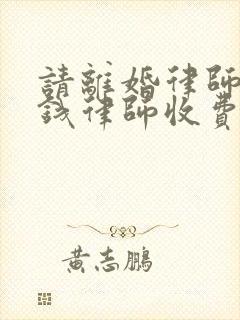 請離婚律師
錢律師收費
黃志鵬